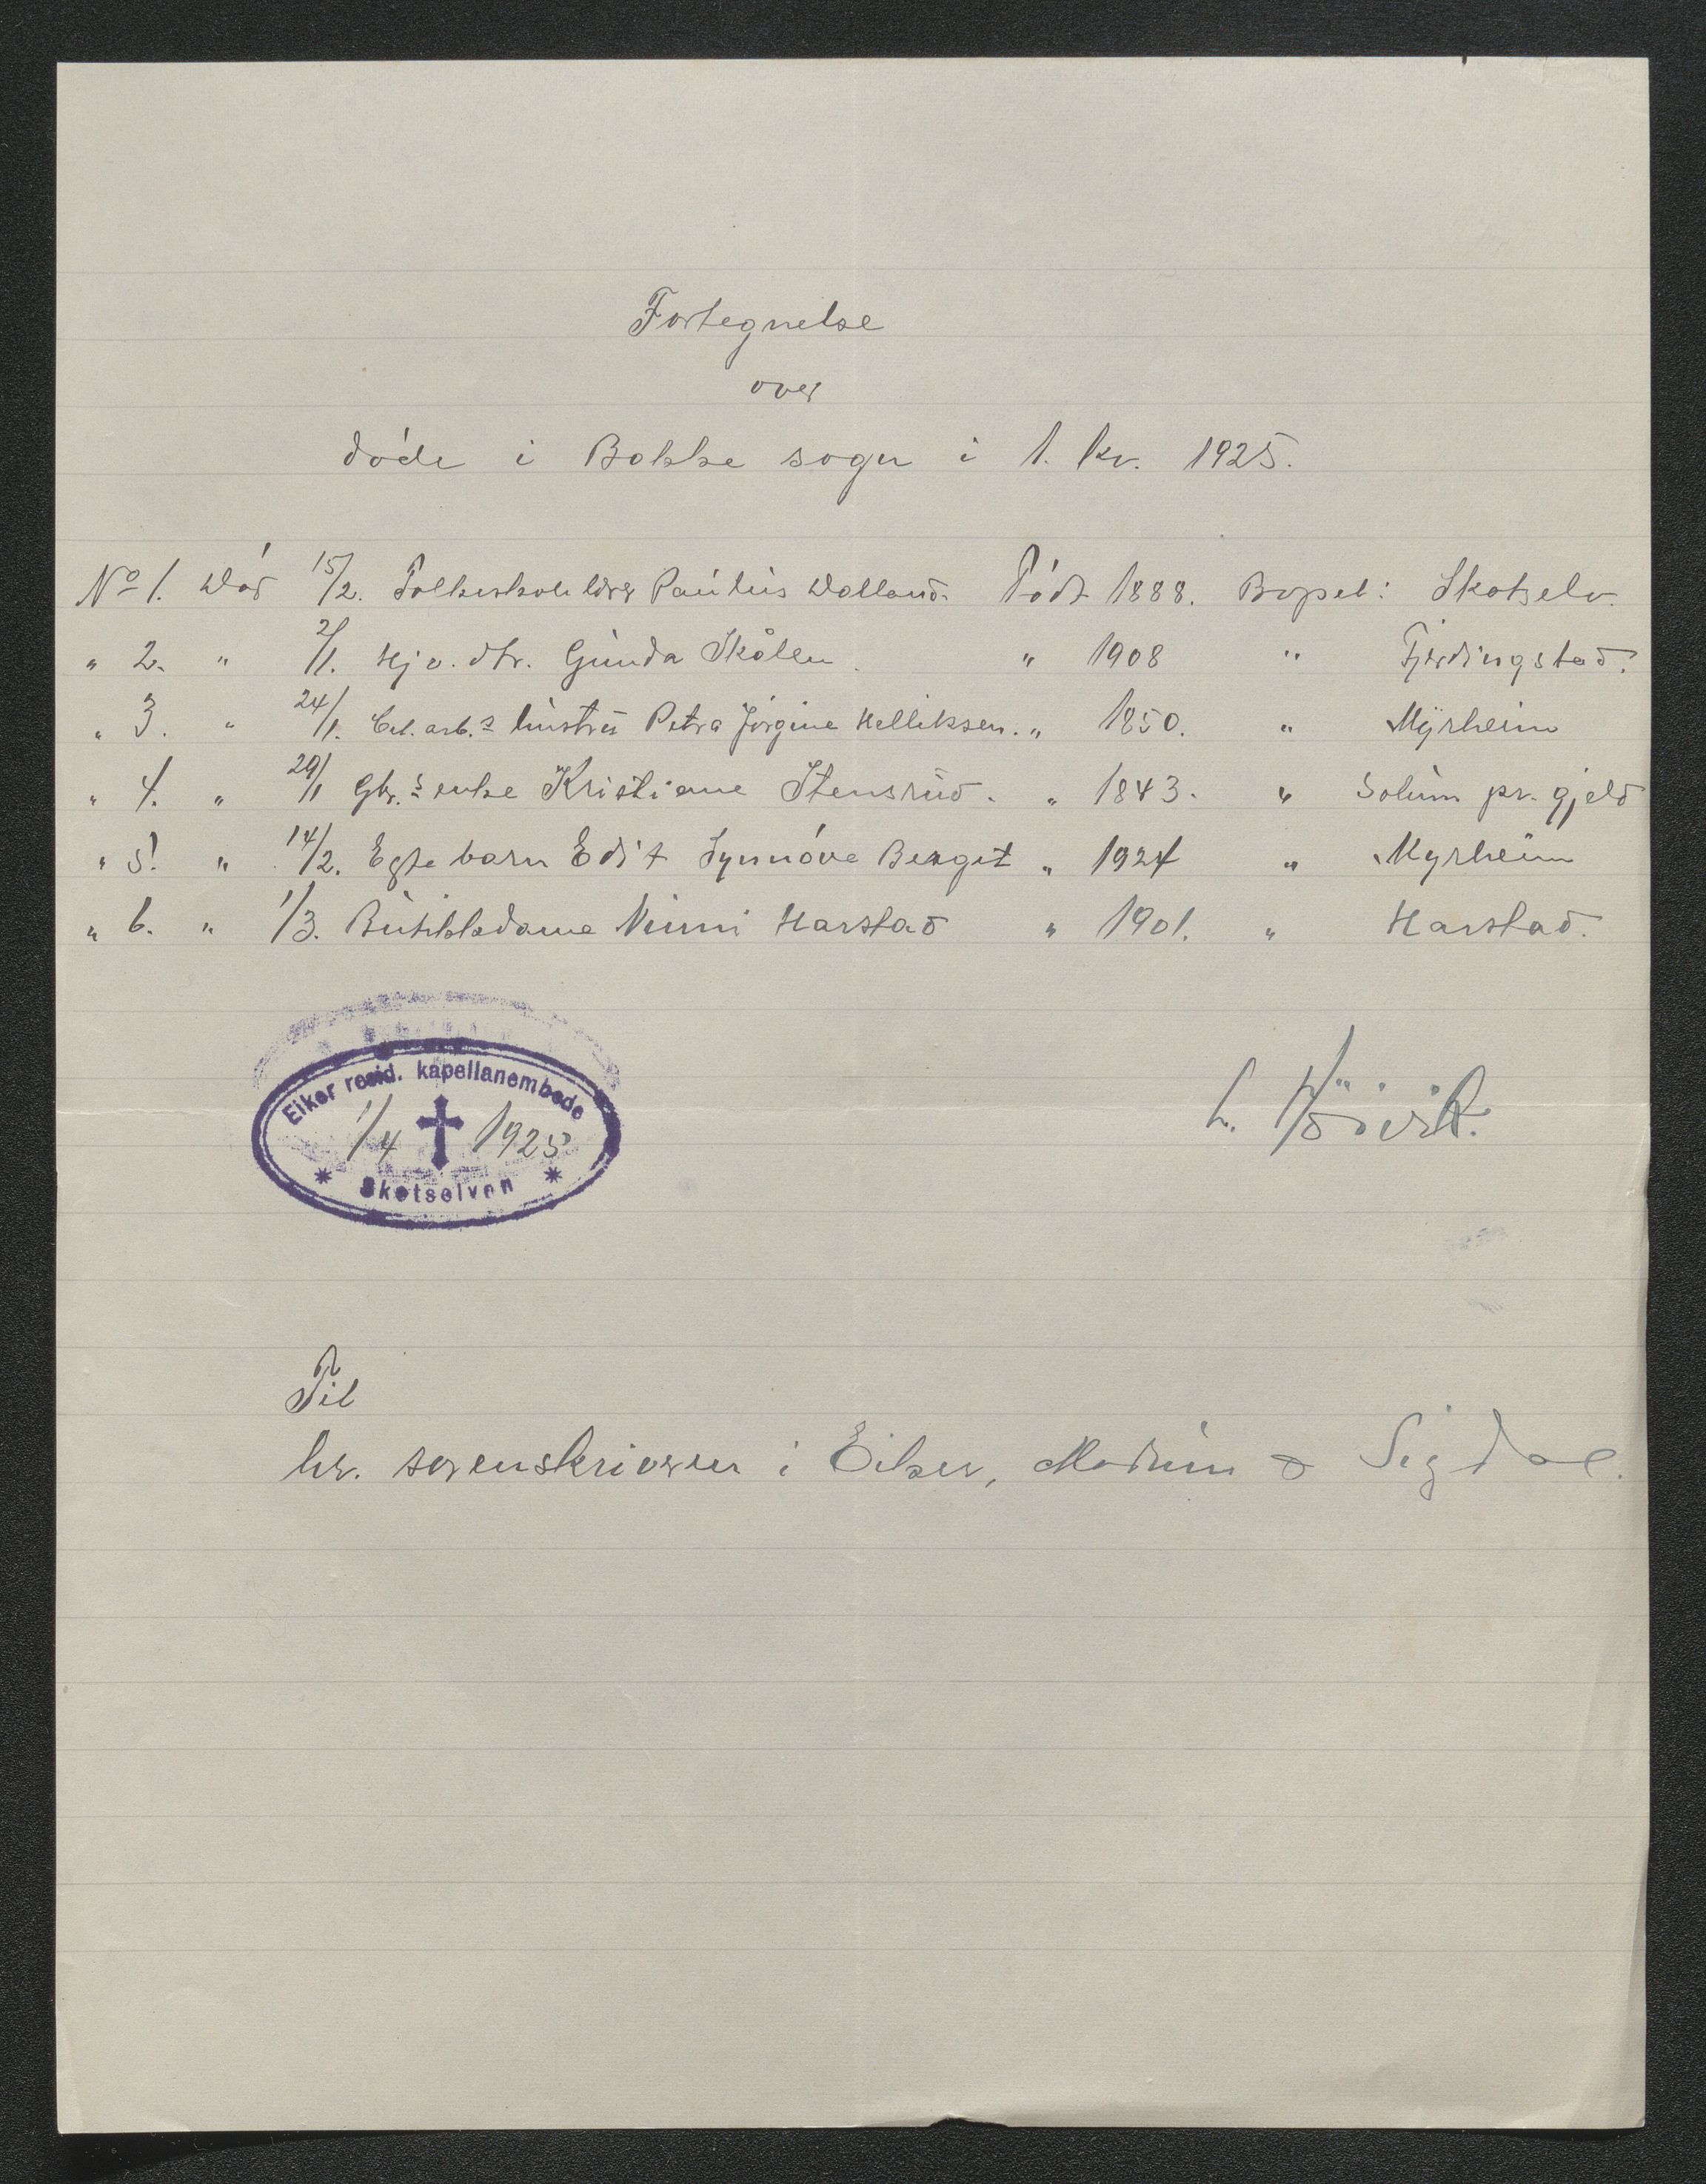 Fortegnelse
over
døde i Bakke sogn i 1. kv. 1925.
No 1. Død 15/2. Folkeskolelærer Paulus Dolland. Født 1888. Bopel: Skotselv.
" 2. " 2/1. Hj. v. dtr. Gunda Skålen. " 1908 " Fjerdingstad.
" 3. " 24/1. arb.s hustru Petra Jørgine Helliksen. " 1850. " Myrheim
" 4. " 29/1 Gbr.s enke Kristiane Stensrud. " 1843. " Solum pr. gjeld
" 5. " 14/2. Egte barn Edit Synnøve Berget " 1924 " Myrheim
" 6. " 1/3. Butikkdame Nunni Harstad " 1901. " Harstad.
Eiker resid. kapellanembede
1/4 1925
Skotselven
Til
hr. sorenskriveren i Eiker, Modum & Sigdal.